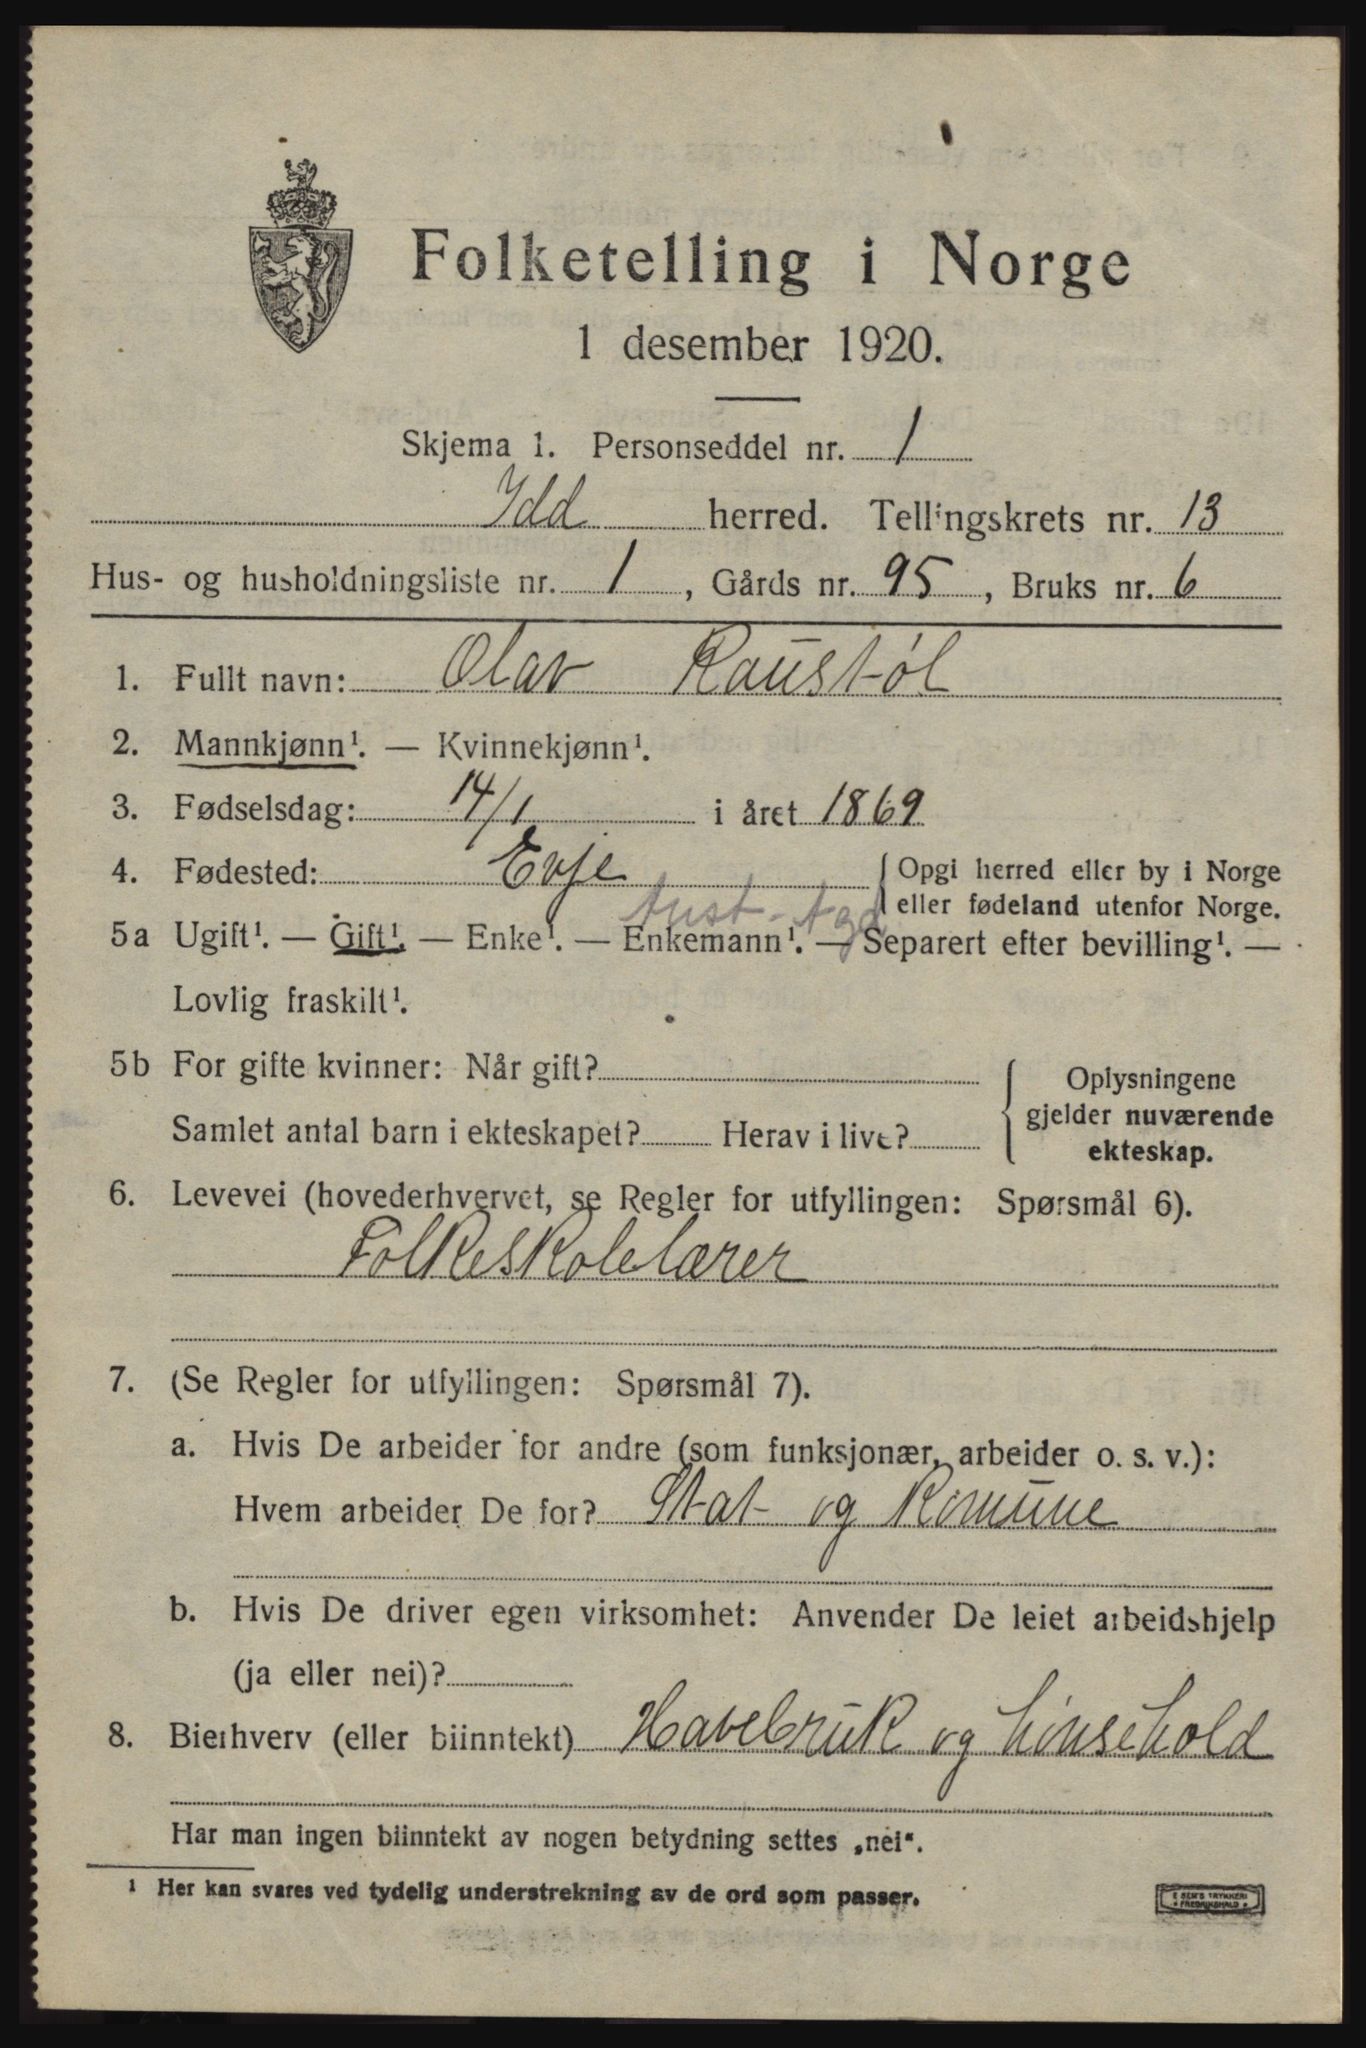 Folketelling i Norge
1 desember 1920.
Skjema 1. Personseddel nr. 1
Idd herred. Tellingskrets nr. 13
Hus- og husholdningsliste nr. 1, Gårds nr. 95, Bruks nr. 6
1. Fullt navn: Olav Raustøl
2. Mannkjønn¹. — Kvinnekjønn¹.
3. Fødselsdag: 14/1 i året 1869
4. Fødested: Evje { Opgi herred eller by i Norge
eller fødeland utenfor Norge.
Aust-Agd
5a Ugift¹. — Gift¹. — Enke¹. — Enkemann¹. — Separert efter bevilling¹. —
Lovlig fraskilt¹.
5b For gifte kvinner: Når gift?
Samlet antal barn i ekteskapet? Herav i live?
{ Oplysningene
gjelder nuværende
ekteskap.
6. Levevei (hovederhvervet, se Regler for utfyllingen: Spørsmål 6).
Folkeskolelærer
7. (Se Regler for utfyllingen: Spørsmål 7).
a. Hvis De arbeider for andre (som funksjonær, arbeider o. s. v.):
Hvem arbeider De for? Stat og Komune
b. Hvis De driver egen virksomhet: Anvender De leiet arbeidshjelp
(ja eller nei)?
8. Bierhverv (eller biinntekt) Havebruk og hønsehold
Har man ingen biinntekt av nogen betydning settes „nei“.
¹ Her kan svares ved tydelig understrekning av de ord som passer.
E SEM'S TRYKKERI
FREDRIKSHALD